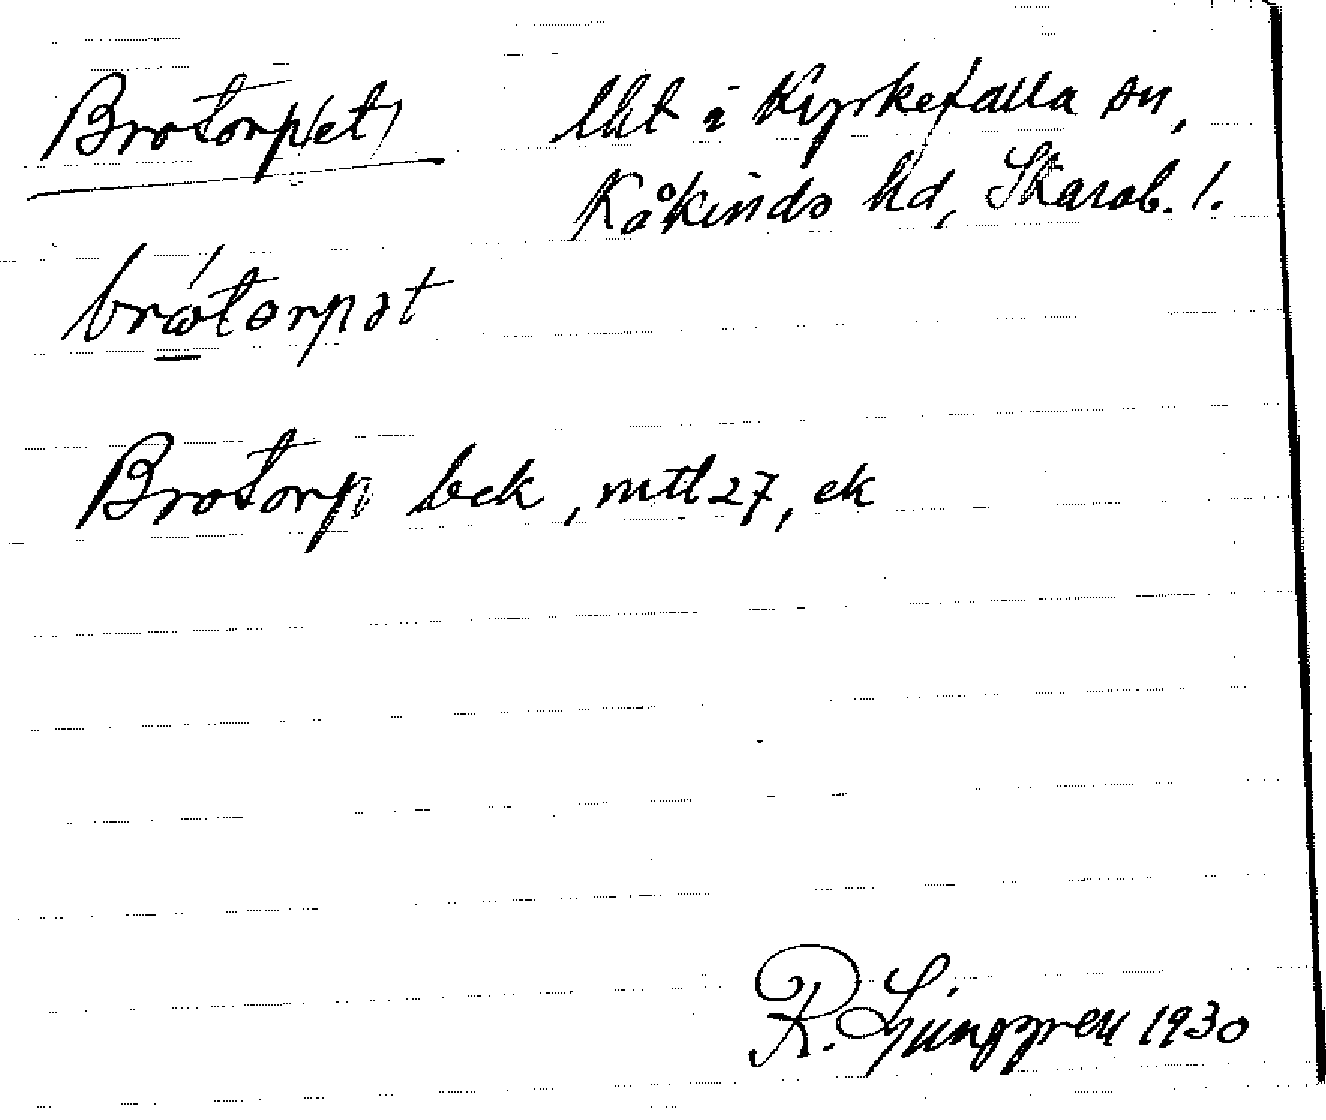 Brotorp(et) lht i Kyrkefalla sn,
Kåkinds hd, Skarab. l.
brótorpət
Brotorp bek, mtl 27, ek
R. Ljunggren 1930